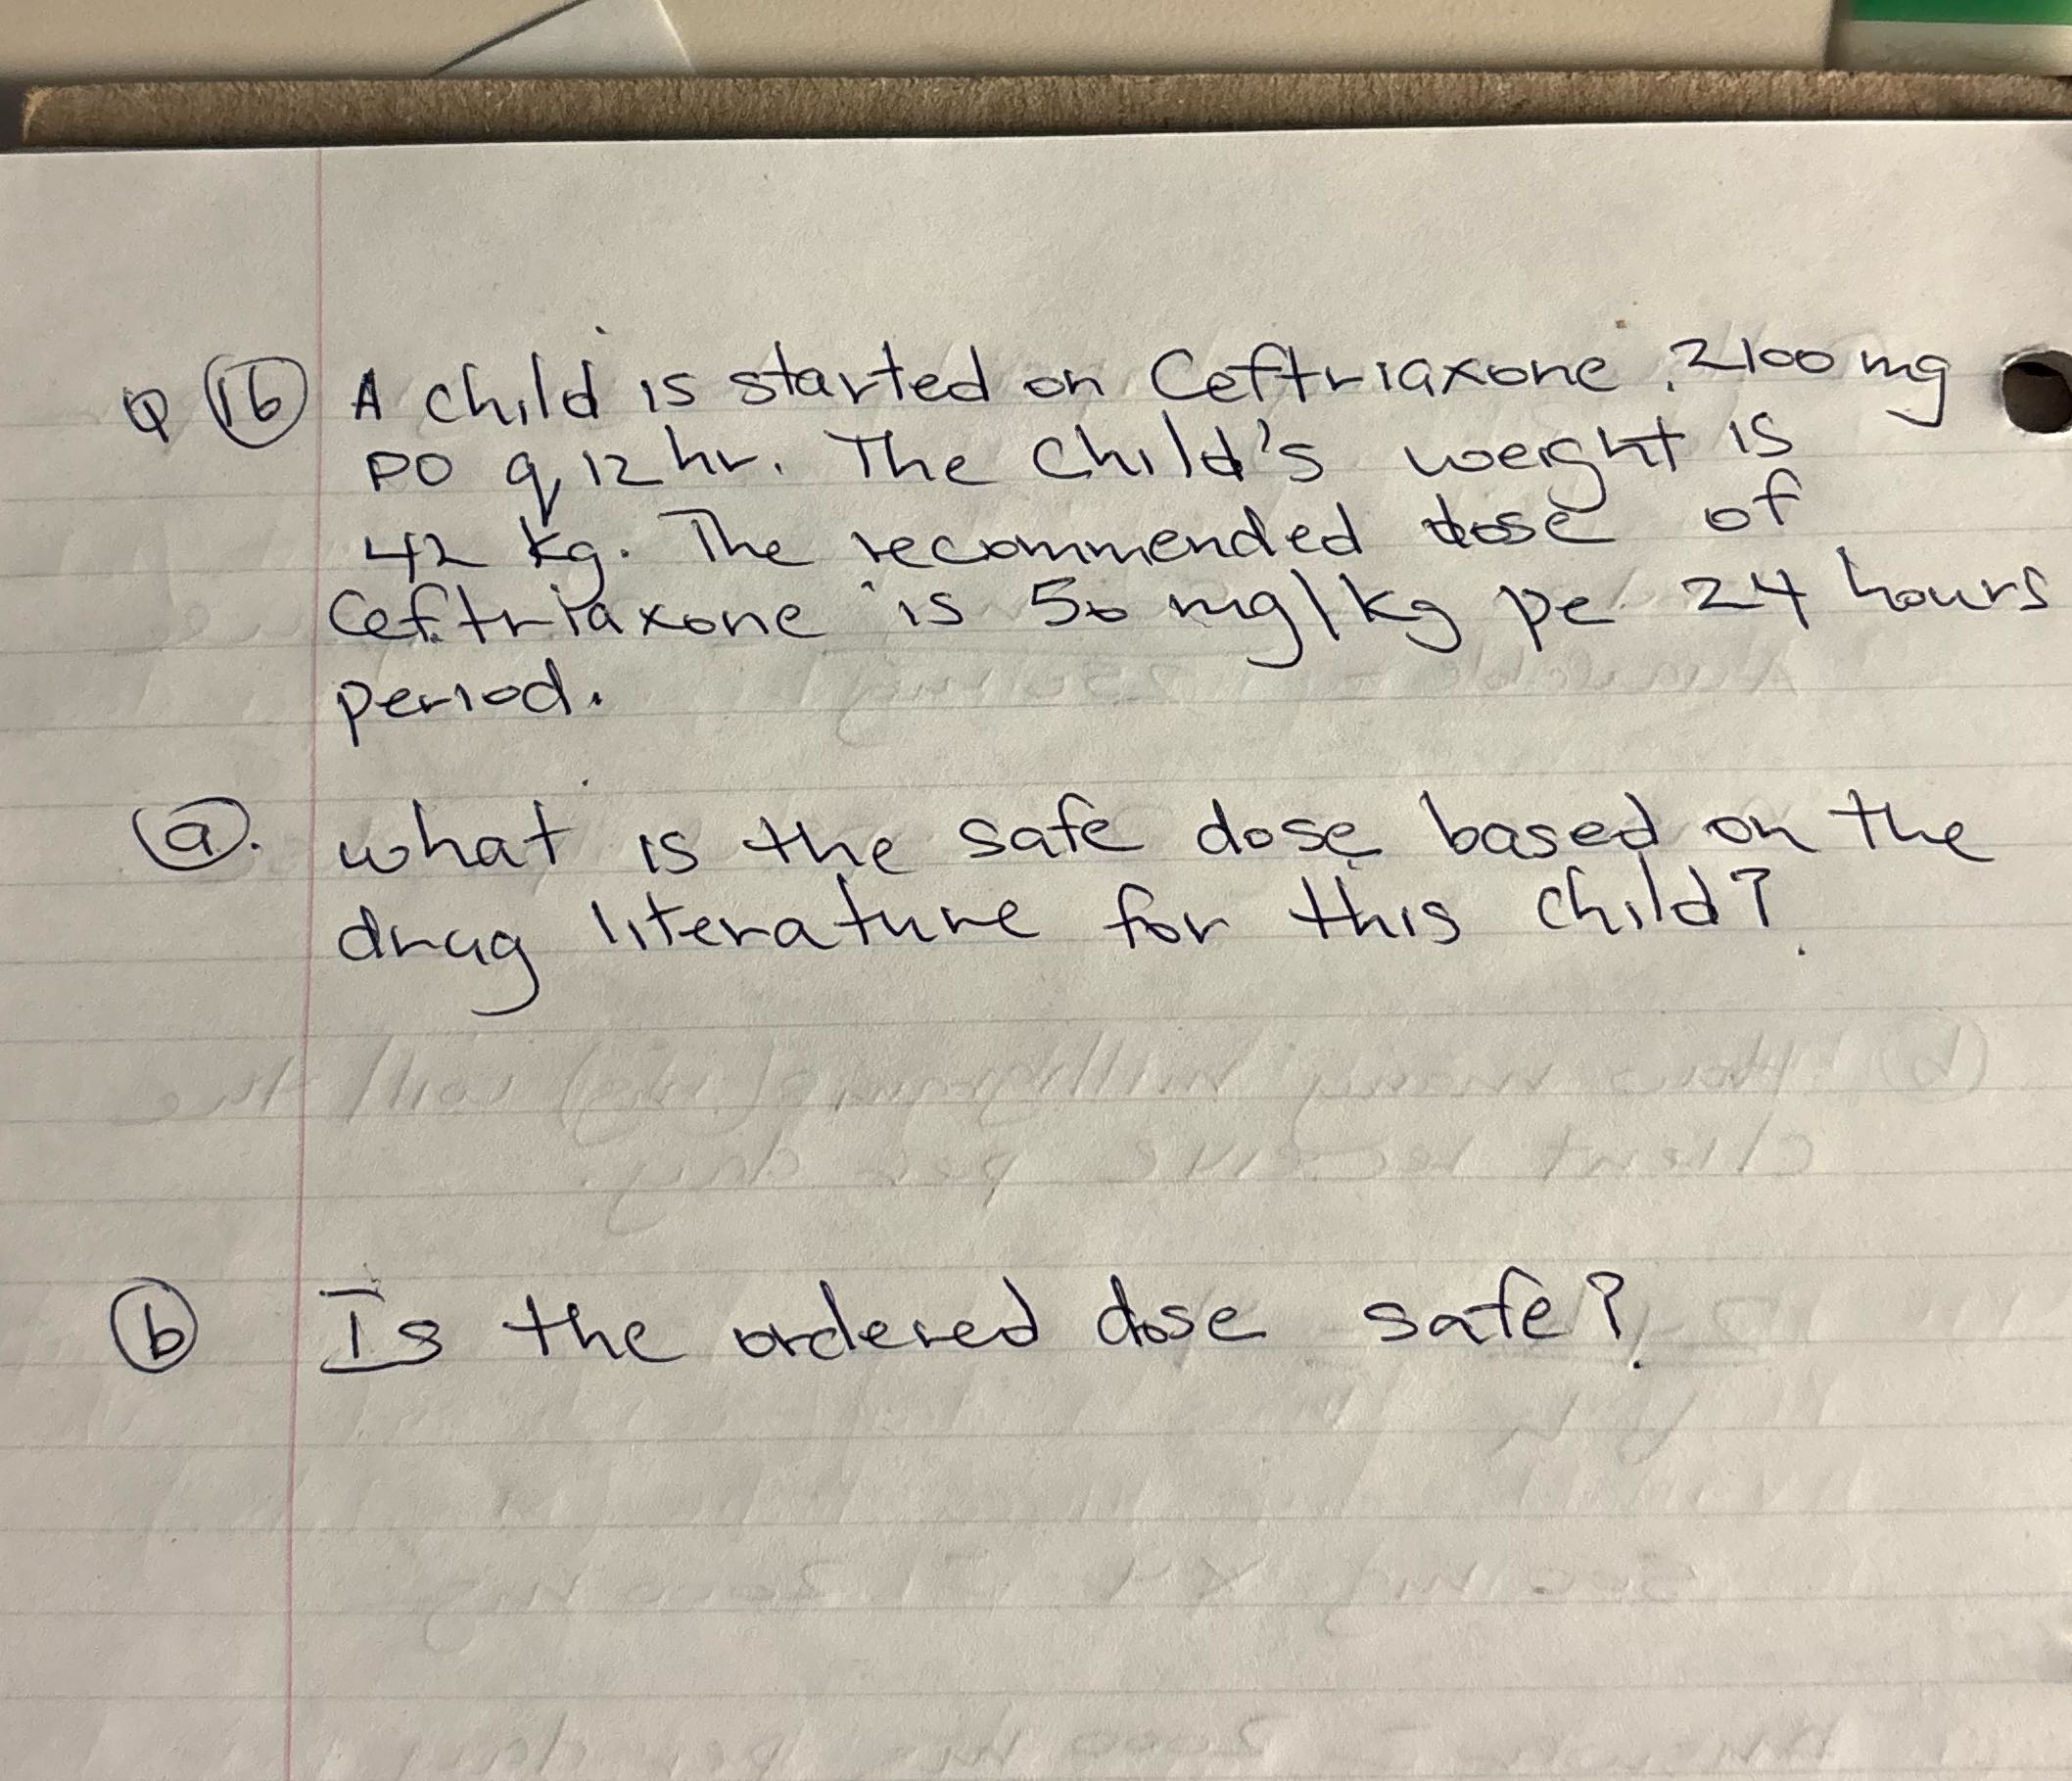 Q 16 A child is started on Ceftriaxone 2100 mg
PO q 12 hr. The child's weight is
42 kg. The recommended dose of
Ceftriaxone is 50 mg/kg pe 24 hours
period.
a. what is the safe dose based on the
drug literature for this child?
b Is the ordered dose safe?